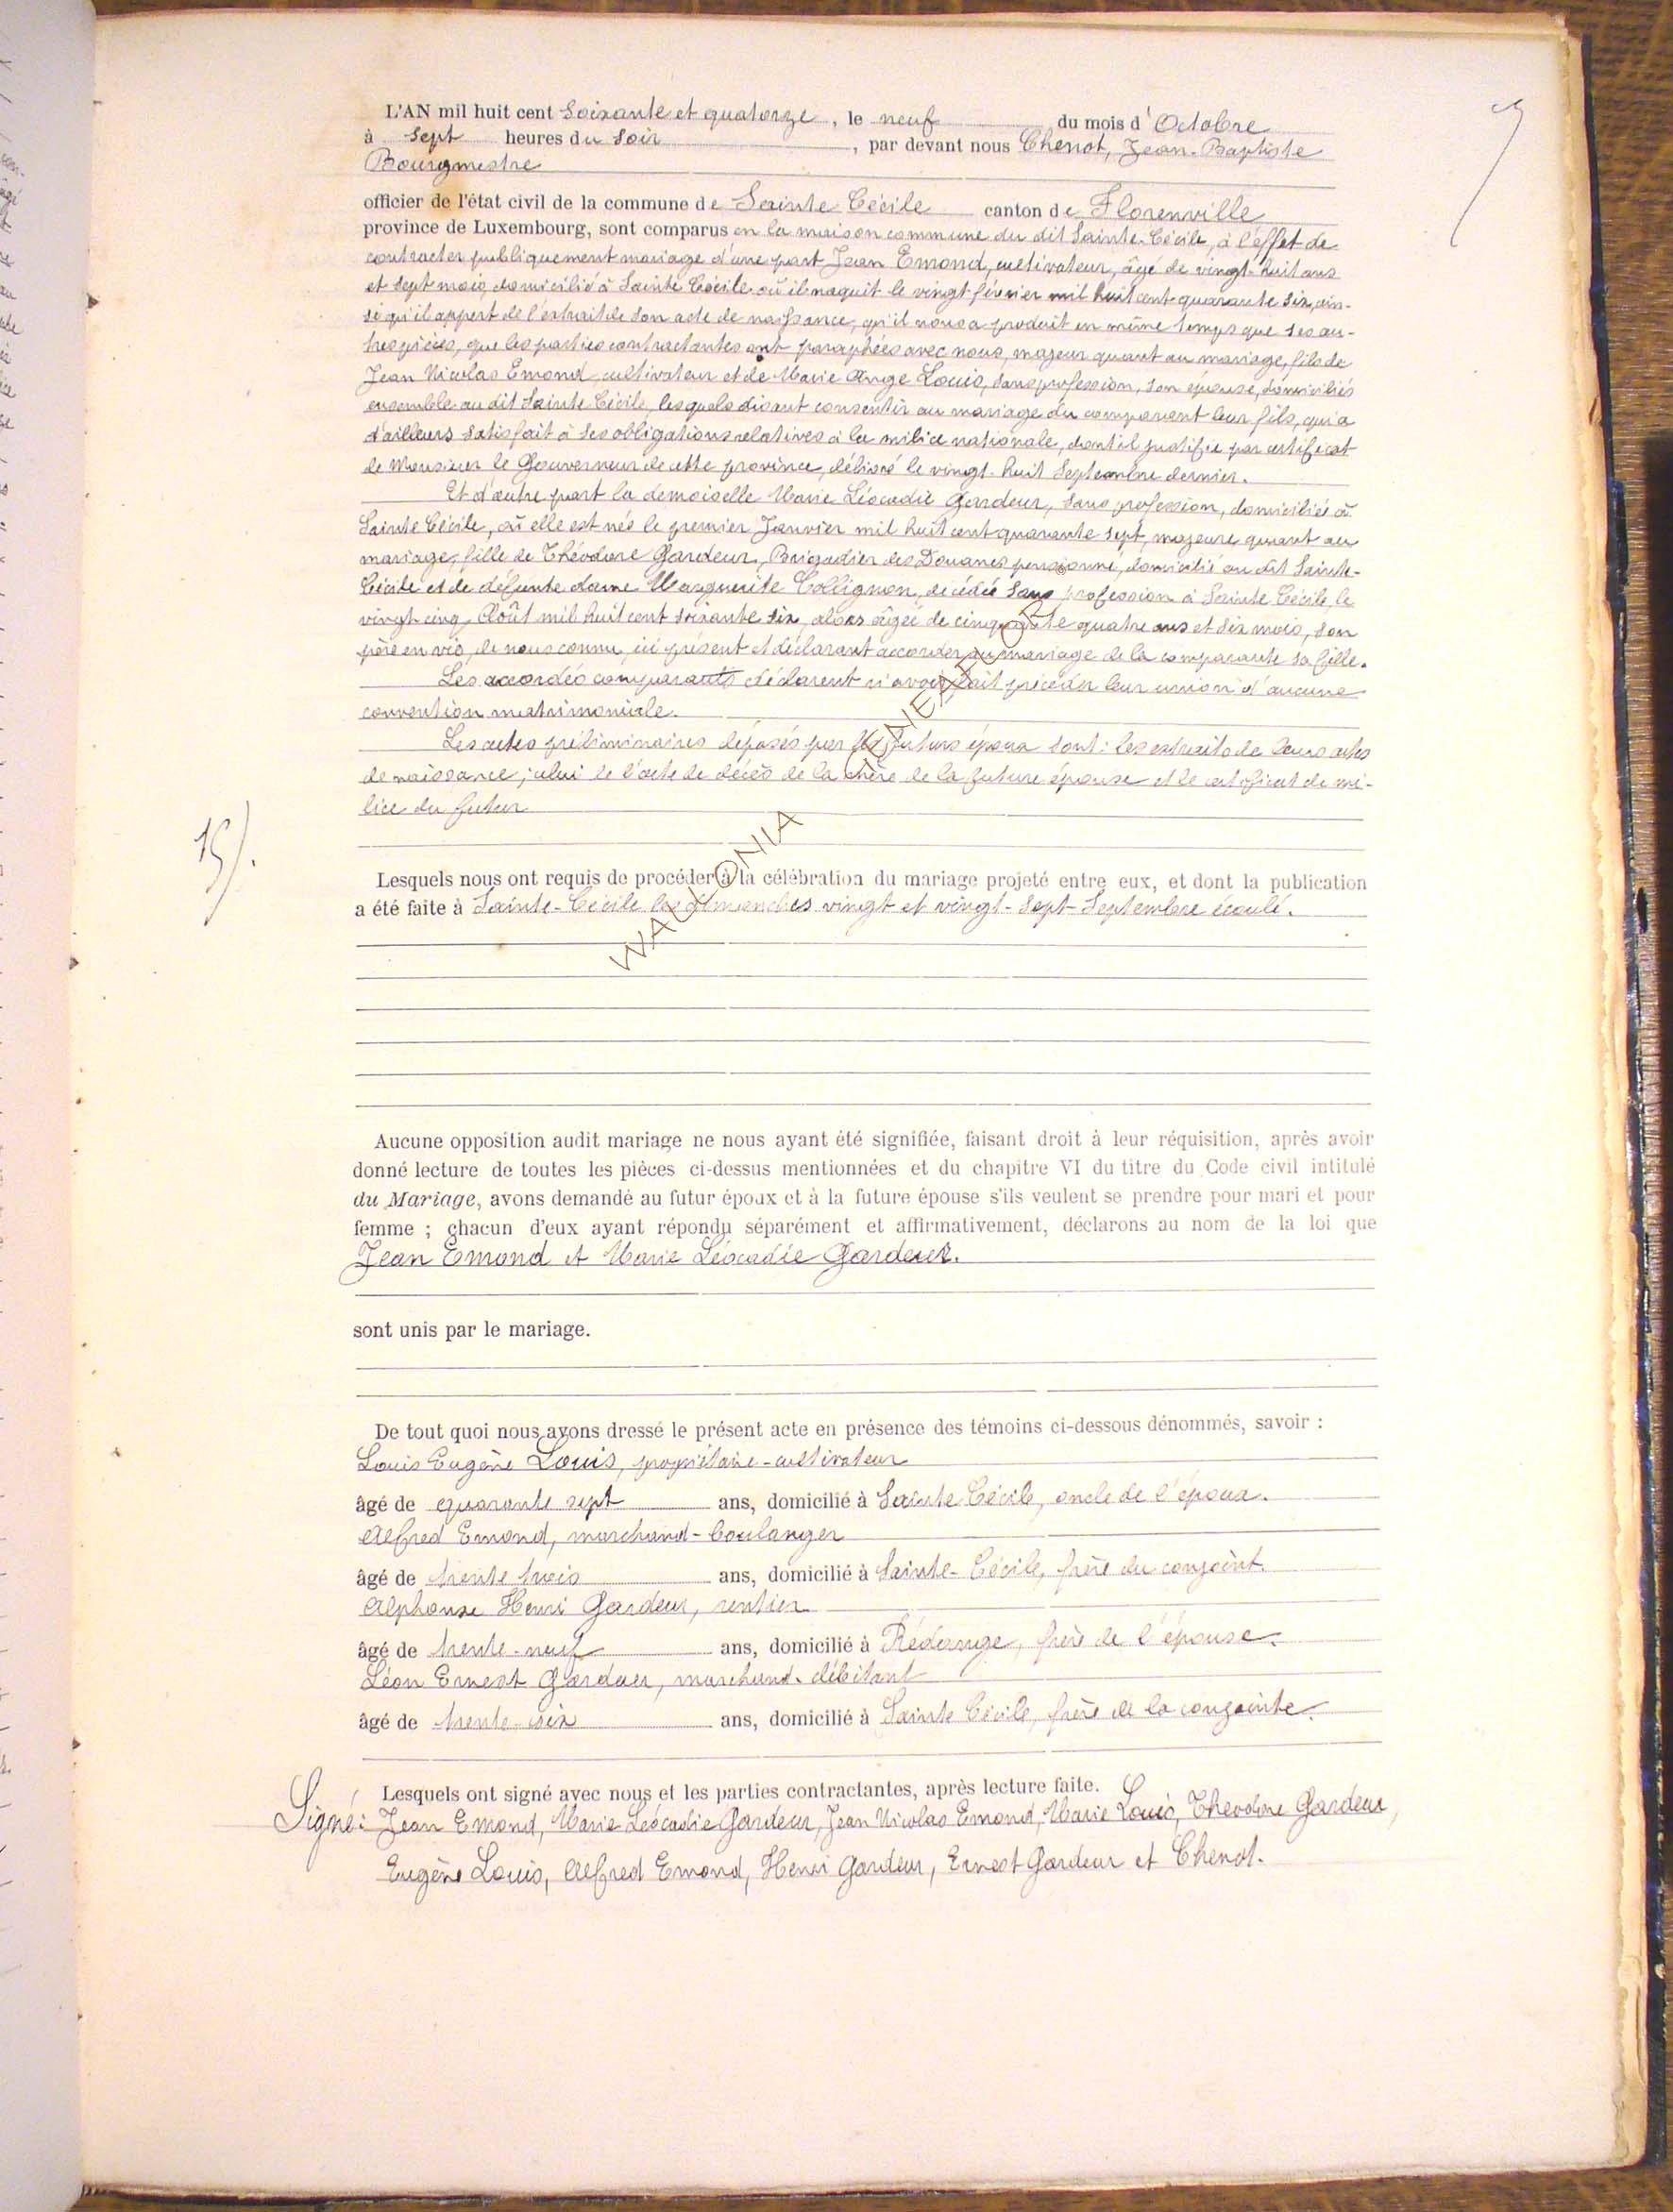 L'AN mil huit cent soixante et quatorze, le neuf du mois d'Octobre
à sept heures du soir, par devant nous Chenot, Jean-Baptiste
Bourgmestre
officier de l'état civil de la commune de Sainte Cécile canton de Florenville
province de Luxembourg, sont comparus en la maison commune du dit Sainte-Cécile, à l'effet de
contracter publiquement mariage d'une part Jean Emond, cultivateur, âgé de vingt-huit ans
et sept mois, domicilié à Sainte Cécile où il naquit le vingt février mil huit cent quarante six, ain-
si qu'il appert de l'extrait de son acte de naissance, qu'il nous a produit en même temps que ses au-
tres pièces, que les parties contractantes ont paraphées avec nous, majeur quant au mariage, fils de
Jean Nicolas Emond, cultivateur et de Marie Ange Louis, sans profession, son épouse, domiciliés
ensemble au dit Sainte Cécile, lesquels disent consentir au mariage du comparant leur fils, qui a
d'ailleurs satisfait à ses obligations relatives à la milice nationale, dont il justifie par certificat
de Monsieur le Gouverneur de cette province, délivré le vingt-huit Septembre dernier.
Et d'autre part la demoiselle Marie Léocadie Gardeur, sans profession, domiciliée à
Sainte Cécile, où elle est née le premier Janvier mil huit cent quarante sept, majeure quant au
mariage, fille de Théodore Gardeur, Brigadier des Douanes pensionné, domicilié au dit Sainte-
Cécile et de défunte dame Marguerite Collignon, décédée sans profession à Sainte Cécile, le
vingt cinq Août mil huit cent soixante six, alors âgée de cinquante quatre ans et six mois, son
père en vie, de nous connu, ici présent et déclarant accorder au mariage de la comparante sa fille.
Les accordés comparants déclarent n'avoir fait précéder leur union d'aucune
convention matrimoniale.
Les actes préliminaires déposés par les futurs époux sont: les extraits de leurs actes
de naissance; celui de l'acte de décès de la mère de la future épouse et le certificat de mi-
lice du futur
15/.
Lesquels nous ont requis de procéder à la célébration du mariage projeté entre eux, et dont la publication
a été faite à Sainte-Cécile les dimanches vingt et vingt-sept Septembre écoulé.
WALLONIA
Aucune opposition audit mariage ne nous ayant été signifiée, faisant droit à leur réquisition, après avoir
donné lecture de toutes les pièces ci-dessus mentionnées et du chapitre VI du titre du Code civil intitulé
du Mariage, avons demandé au futur époux et à la future épouse s'ils veulent se prendre pour mari et pour
femme ; chacun d'eux ayant répondu séparément et affirmativement, déclarons au nom de la loi que
Jean Emond et Marie Léocadie Gardeur.
sont unis par le mariage.
De tout quoi nous avons dressé le présent acte en présence des témoins ci-dessous dénommés, savoir :
Louis Eugène Louis, propriétaire-cultivateur
âgé de quarante sept ans, domicilié à Sainte Cécile, oncle de l'époux.
Alfred Emond, marchand-boulanger
âgé de trente trois ans, domicilié à Sainte-Cécile, frère du conjoint.
Alphonse Henri Gardeur, rentier
âgé de trente-neuf ans, domicilié à Rédange, frère de l'épouse.
Léon Ernest Gardeur, marchand-débitant
âgé de trente-six ans, domicilié à Sainte Cécile, frère de la conjointe.
Lesquels ont signé avec nous et les parties contractantes, après lecture faite.
Signé: Jean Emond, Marie Léocadie Gardeur, Jean Nicolas Emond, Marie Louis, Théodore Gardeur,
Eugène Louis, Alfred Emond, Henri Gardeur, Ernest Gardeur et Chenot.